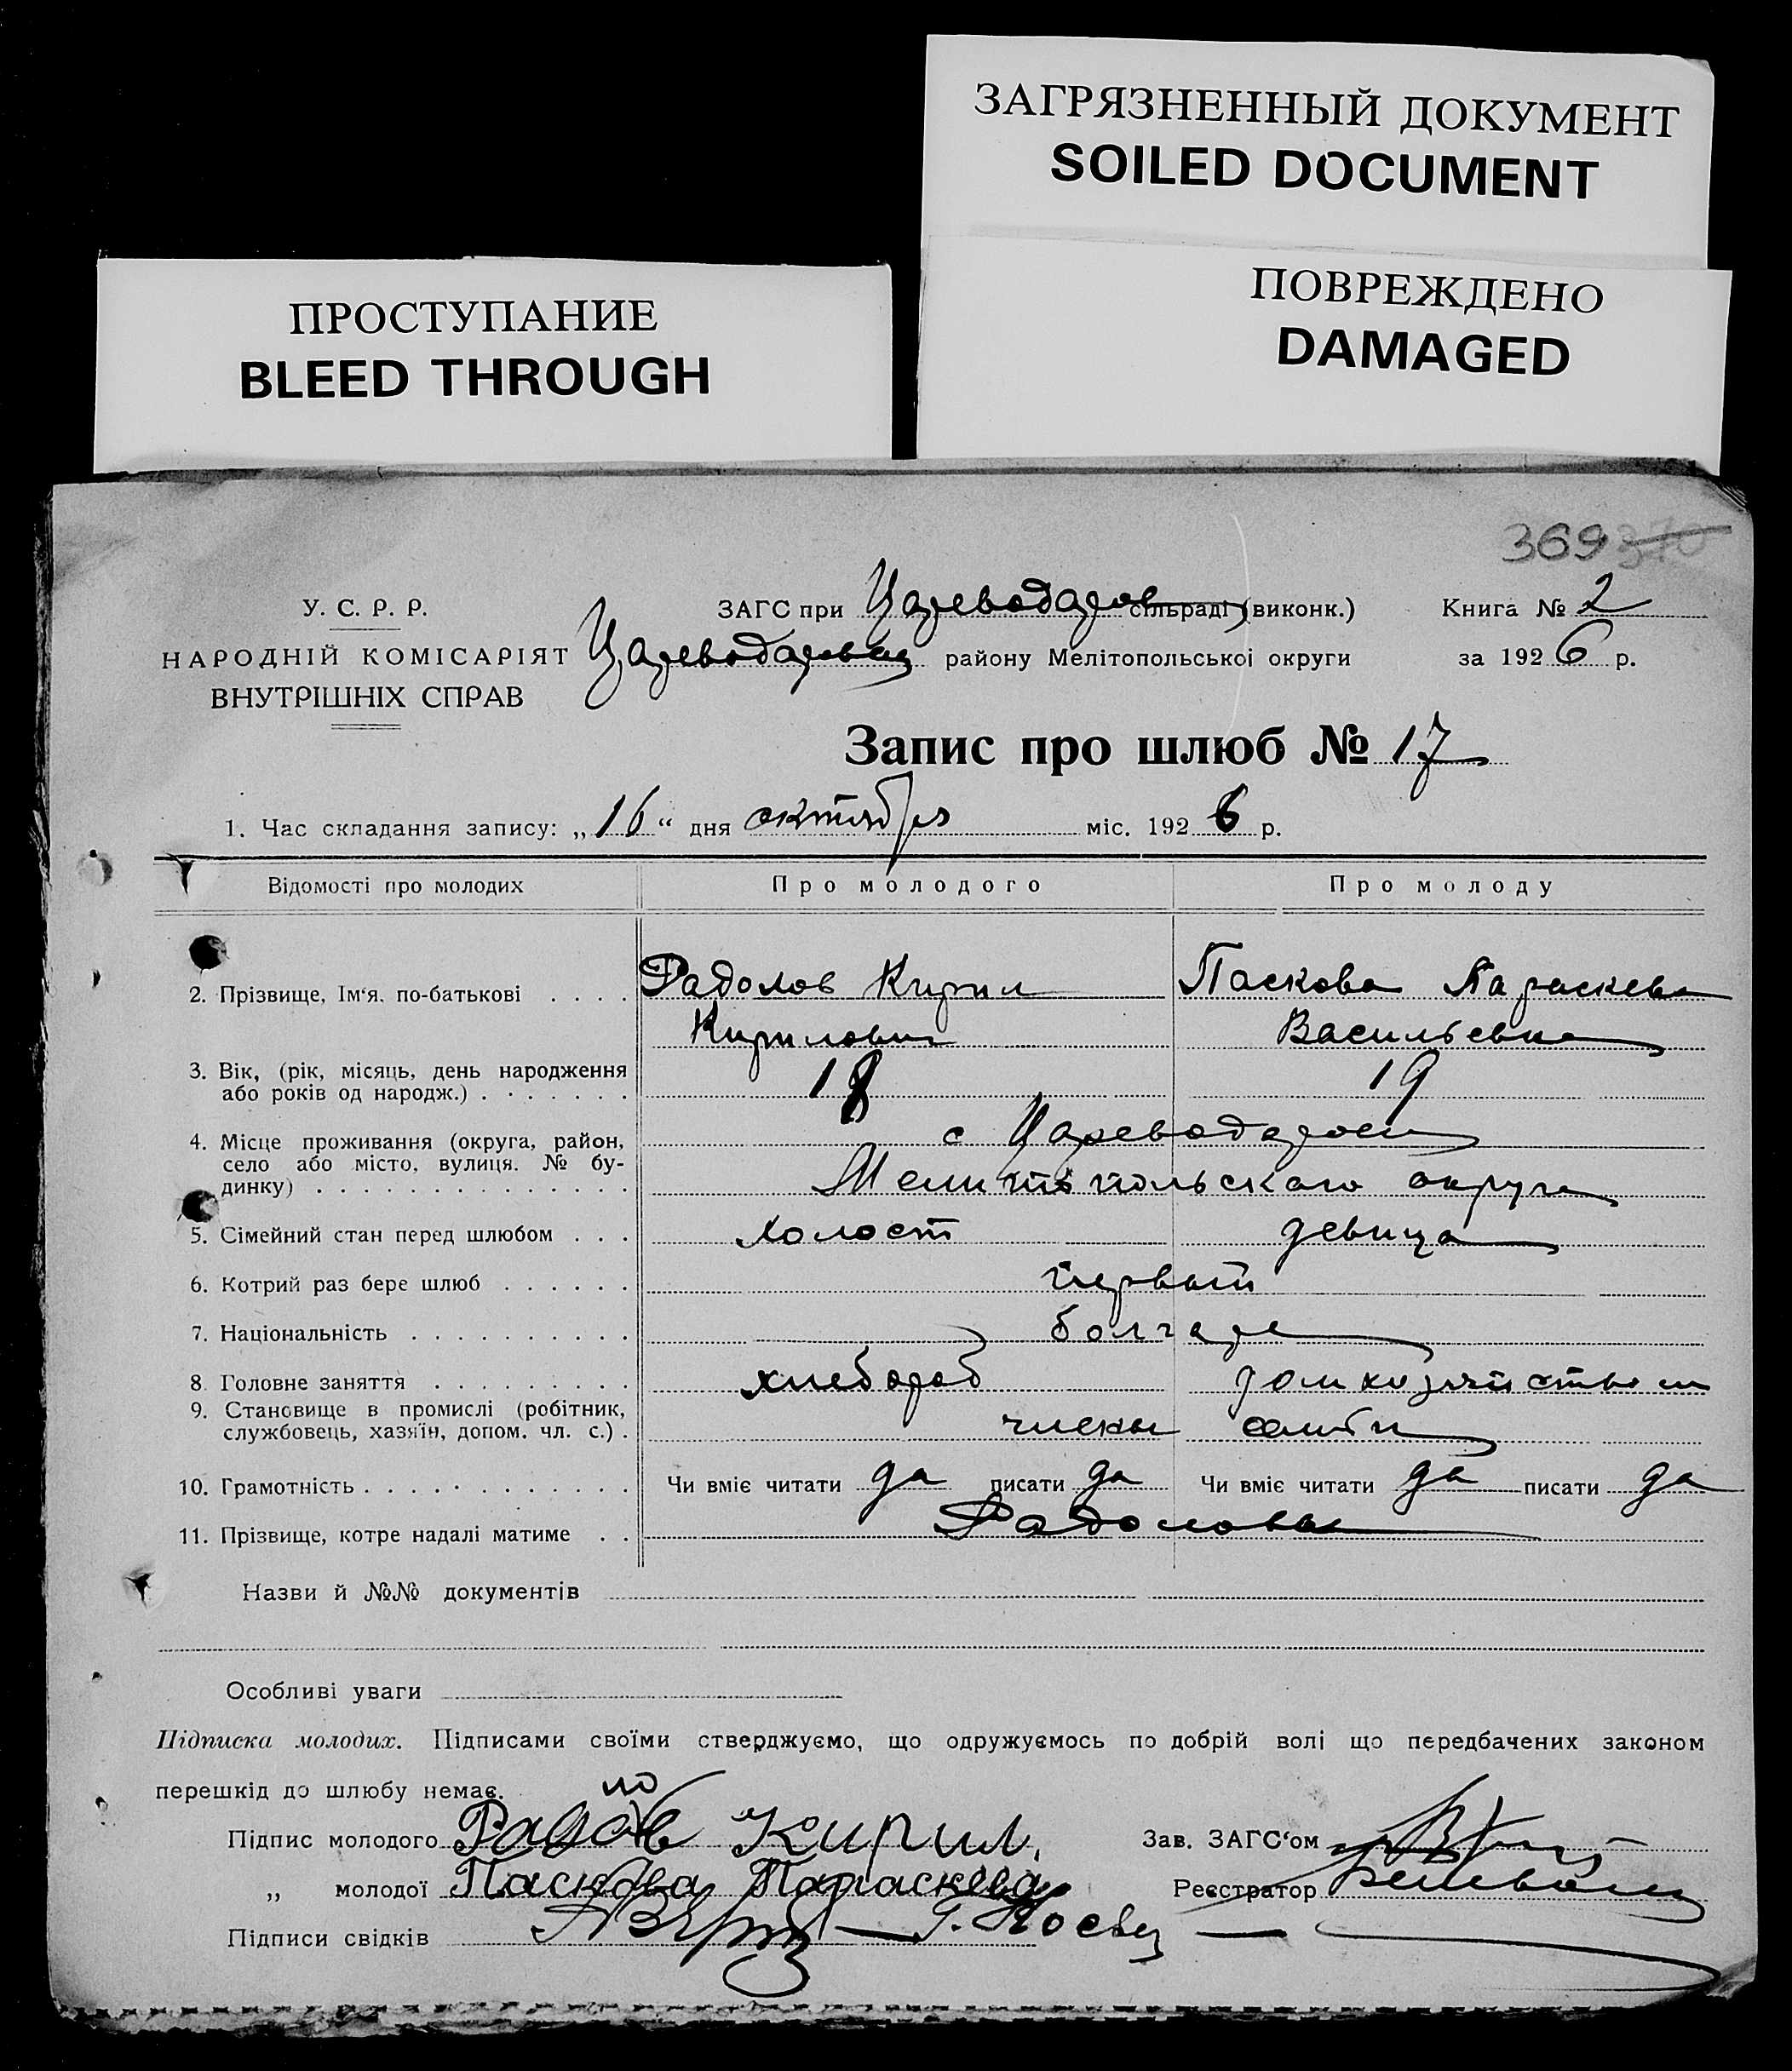 ЗАГРЯЗНЕННЫЙ ДОКУМЕНТ
SOILED DOCUMENT
ПОВРЕЖДЕНО
DAMAGED
ПРОСТУПАНИЕ
BLEED THROUGH
369 370
У. С. Р. Р.
НАРОДНІЙ КОМІСАРІЯТ
ВНУТРІШНІХ СПРАВ
ЗАГС при Цареводаров сільраді (виконк.) Книга № 2
району Мелітопольської округи за 1926 р.
Запис про шлюб № 17
1. Час складання запису: „16“ дня октября міс. 1926 р.
Відомості про молодих Про молодого Про молоду
2. Прізвище, Ім‘я, по-батькові . . . . Радолов Кирил Паскова Параскева
Кирилович Васильевна
3. Вік, (рік, місяць, день народження
або років од народж.) . . . . . . . 18 19
4. Місце проживання (округа, район, с Цареводаровки
село або місто, вулиця. № бу-
динку) . . . . . . . . . . . . . . Мелитопольского округа
5. Сімейний стан перед шлюбом . . . холост девица
6. Котрий раз бере шлюб . . . . . . первый
7. Національність . . . . . . . . . . болгаре
8. Головне заняття . . . . . . . . . хлебороб домхозяйством
9. Становище в промислі (робітник,
службовець, хазяїн, допом. чл. с.) . члены семьи
10. Грамотність . . . . . . . . . . . . Чи вміє читати да писати да Чи вміє читати да писати да
11. Прізвище, котре надалі матиме . . Радоловы
Назви й №№ документів
Особливі уваги
Підписка молодих. Підписами своїми стверджуємо, що одружуємось по добрій волі що передбачених законом
перешкід до шлюбу немає.
ло
Підпис молодого Радов Кирил. Зав. ЗАГС‘ом
„ молодої Паскова Параскева Реєстратор
Підписи свідків